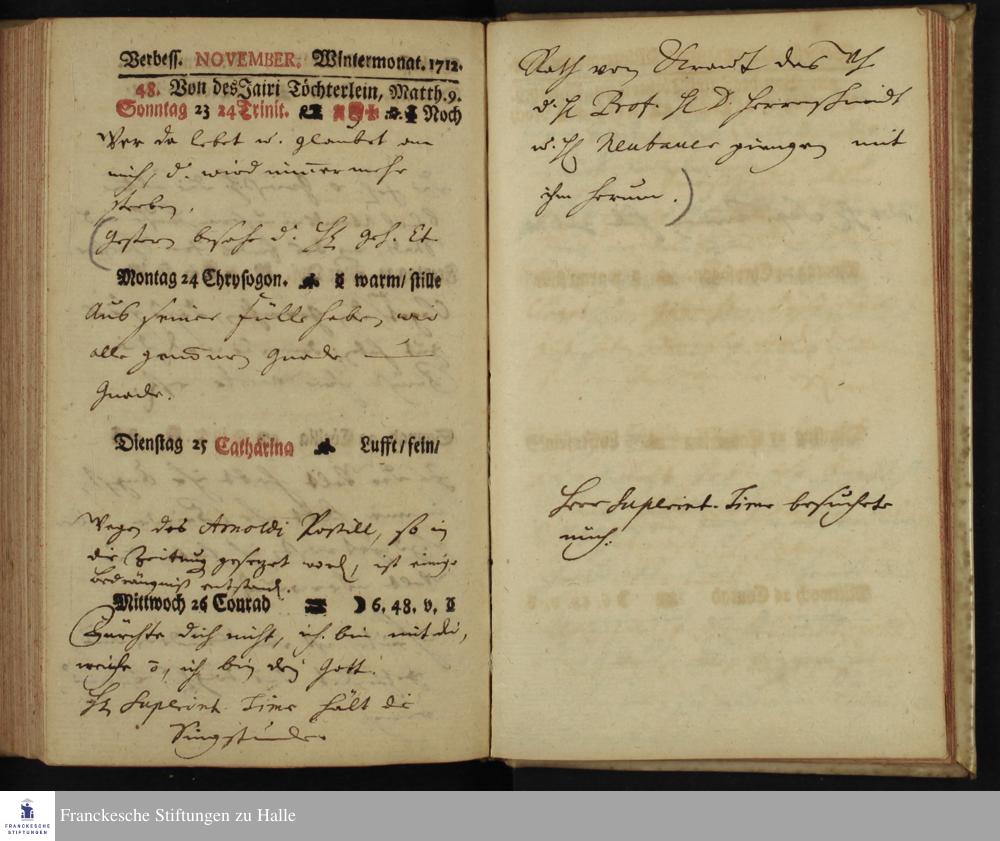 Verbess. NOVEMBER. Wintermonat. 1712.
48. Von des Jairi Töchterlein, Matth. 9.
Sonntag 23 24 Trinit. Noch
Wer da lebet u. glaubet an
mich, d. wird nimmermehr
sterben.
(gestern besahe d. H. Geh. Et.
Montag 24 Chrysogon. ☿ warm/ stille
Aus seiner Fülle haben wir
alle genom̅en Gnade
Gnade.
Dienstag 25 Catharina Lufft/ fein/
Wegen des Arnoldi Postill, so in
die Zeitung gesetzet word, ist einige
Bedrängniß entstand.
Mittwoch 26 Conrad ☽ 6. 48. v. ☿
Fürchte dich nicht, ich bin mit dir,
weiche ō, ich bin dein Gott.
H. Superint. Time hält die
Singstunde
Rath von das
d. H. Prof. H. D. Herrnschmidt
u. H. Neubauer giengen mit
ihm herum.)
Herr Superint. Time besuchete
mich.
FRANCKESCHE
STIFTUNGEN
Franckesche Stiftungen zu Halle